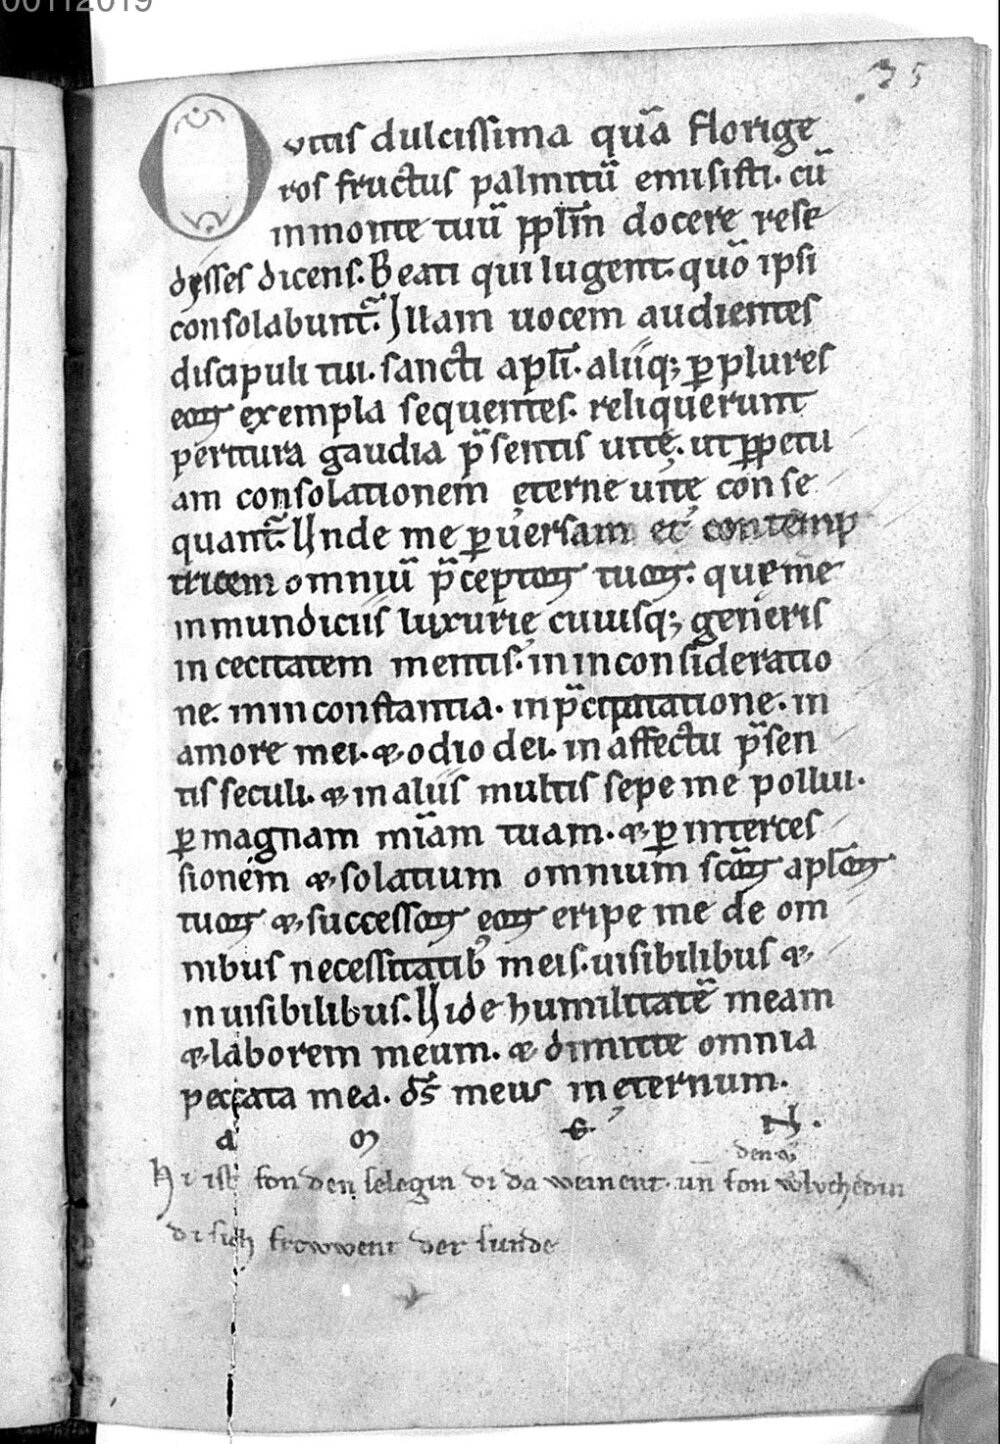 00112019
35
O uitis dulcissima quā florige
ros fructus palmitū emisisti. cū
in monte tuū pplm̄ docere rese
dysses dicens. Beati qui lugent. quō ipsi
consolabunt᷑. Illam uocem audientes
discipuli tui. sancti apłi. aliiq; ꝑ plures
eoꝝ exempla sequentes. reliquerunt
peritura gaudia p̄sentis uitę. ut ꝑpetu
am consolationem ęterne uitę conse
quant᷑. Unde me ꝑuersam et contemp
tricem omniū p̄ceptoꝝ tuoꝝ. quę me
inmundiciis luxurię cuiusq; generis
in cecitatem mentis. in inconsideratio
ne. in inconstantia. in p̄cipitatione. in
amore mei. & odio dei. in affectu p̄sen
tis seculi. & in aliis multis sepe me pollui.
ꝑ magnam mīam tuam. & ꝑ interces
sionem & solatium omnium scōꝝ apłoꝝ
tuoꝝ & successoꝝ eoꝝ eripe me de om
nibus necessitatib᷒ meis. uisibilibus &
inuisibilibus. Uide humilitatē meam
& laborem meum. & dimitte omnia
peccata mea. ds̄ meus in ęternum.
A M E N.
Hi ist fon den selegin di da weinent. un̄ fon den
di sich frowwent der sunde